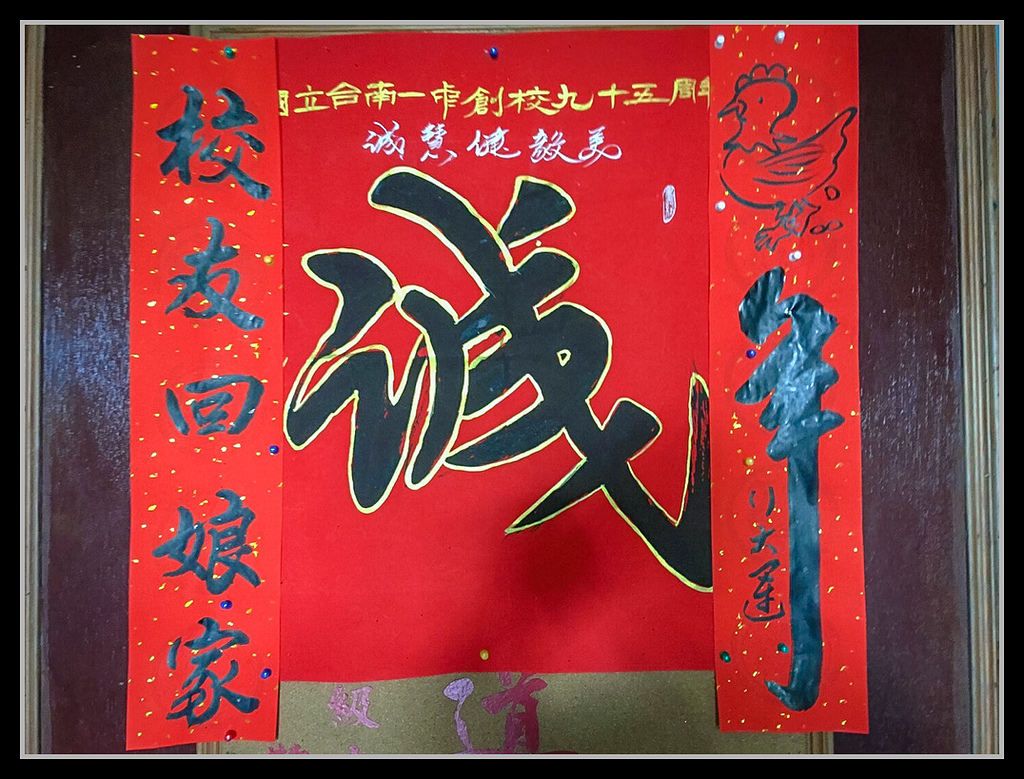 國立台南一中創校九十五周年
誠慧健毅美
誠
校友回娘家
年
行大運
級
道